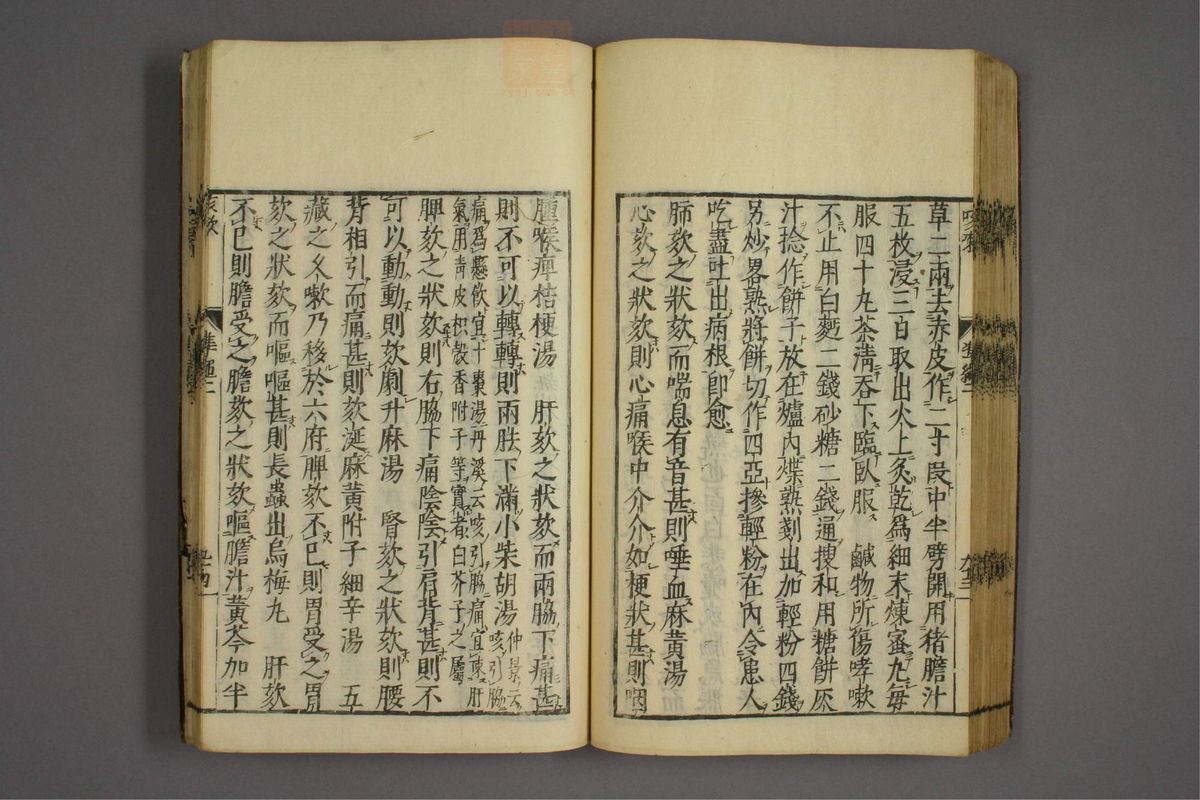 草三兩去赤皮作二寸段中半劈開用猪膽汁
五枚浸三日取出火上炙乾爲細末煉蜜丸每
服四十九茶淸吞下臨臥服　鹹物所傷哮嗽
不止用白麪二錢砂糖二錢通搜和用糖餅灰
汁捻作餅子放在爐內煠熟剗出加輕粉四錢
另炒畧熟將餅切作四亞摻輕粉在內令患人
吃盡吐出病根卽愈
肺欬之狀欬而喘息有音甚則唾血麻黃湯
心欬之狀欬則心痛喉中介介如梗狀甚則咽
腫喉痺桔梗湯　肝欬之狀欬而兩脇下痛甚
則不可以轉轉則兩胠下滿小柴胡湯仲景云咳引脇
痛爲懸飮宜十棗湯丹溪云咳引脇痛宜疎肝
氣用靑皮枳殼香附子等實者白芥子之屬
脾欬之狀欬則右脇下痛陰陰引肩背甚則不
可以動動則欬劇升麻湯　腎欬之狀欬則腰
背相引而痛甚則欬涎麻黃附子細辛湯　五
藏之久嗽乃移於六府脾欬不已則胃受之胃
欬之狀欬而嘔嘔甚則長蟲出烏梅丸　肝欬
不已則膽受之膽欬之狀欬嘔膽汁黃芩加半